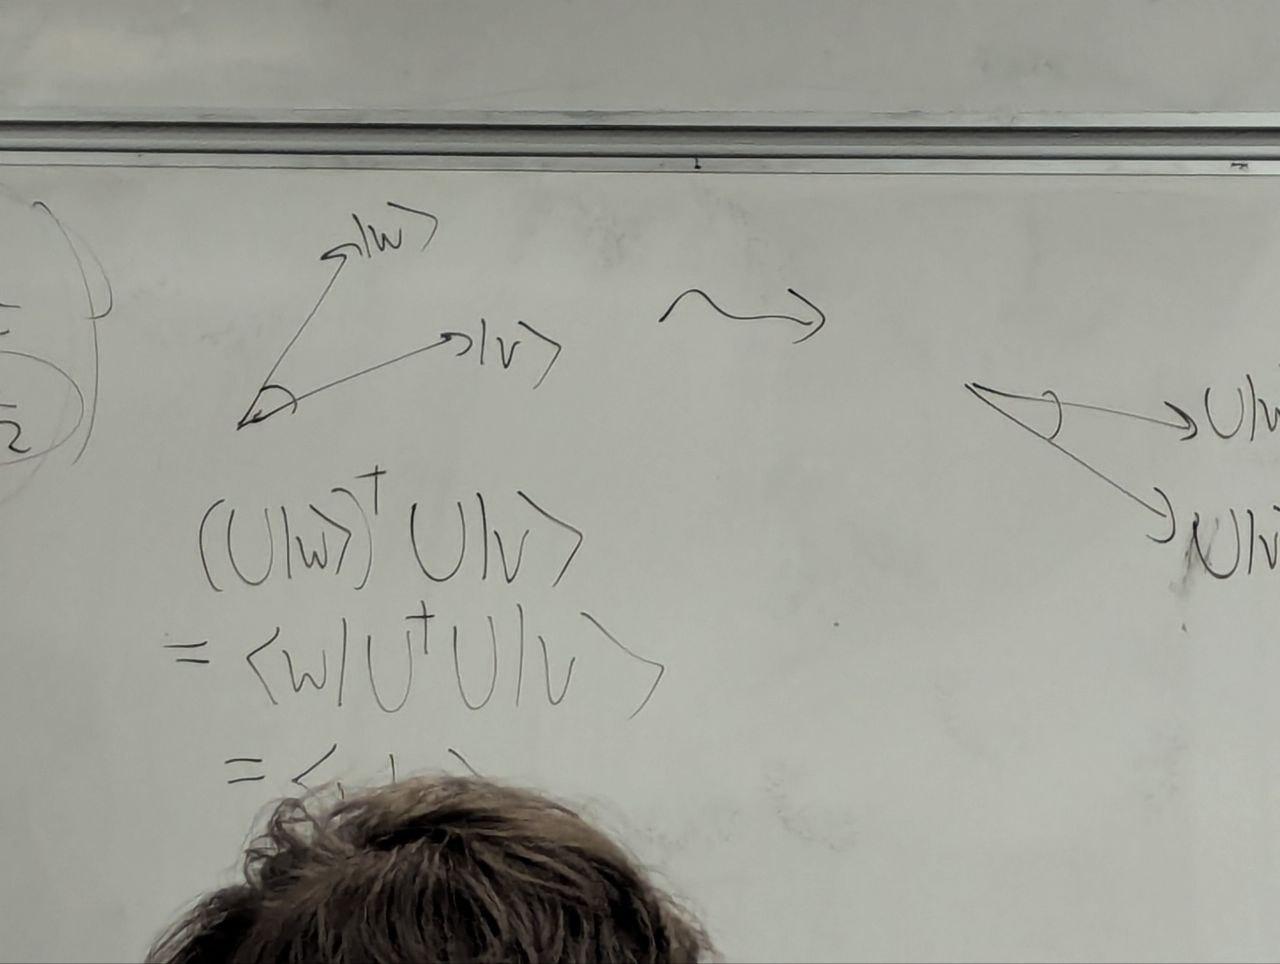 |w⟩
|v⟩
U|w
U|v
(U|w⟩)† U|v⟩
= ⟨w|U†U|v⟩
= ⟨
2